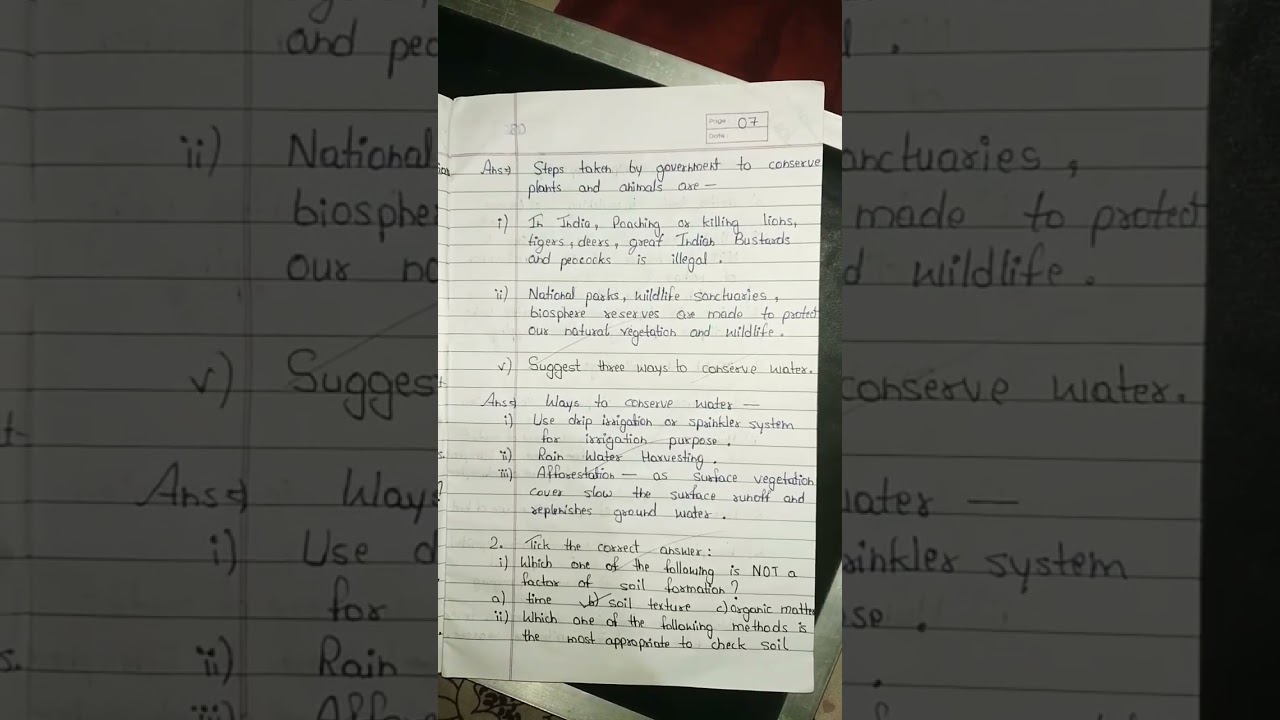 Page: 07
Date:
Ans⇒ Steps taken by government to conserve
plants and animals are –
i) In India, Poaching or killing lions,
tigers, deers, great Indian Bustards
and peacocks is illegal.
ii) National parks, wildlife sanctuaries,
biosphere reserves are made to protect
our natural vegetation and wildlife.
v) Suggest three ways to conserve water.
Ans⇒ Ways to conserve water —
i) Use drip irrigation or sprinkler system
for irrigation purpose.
ii) Rain Water Harvesting.
iii) Afforestation — as surface vegetation
cover slow the surface runoff and
replenishes ground water.
2. Tick the correct answer:
i) Which one of the following is NOT a
factor of soil formation?
a) time b) soil texture c) organic matter
ii) Which one of the following methods is
the most appropriate to check soil